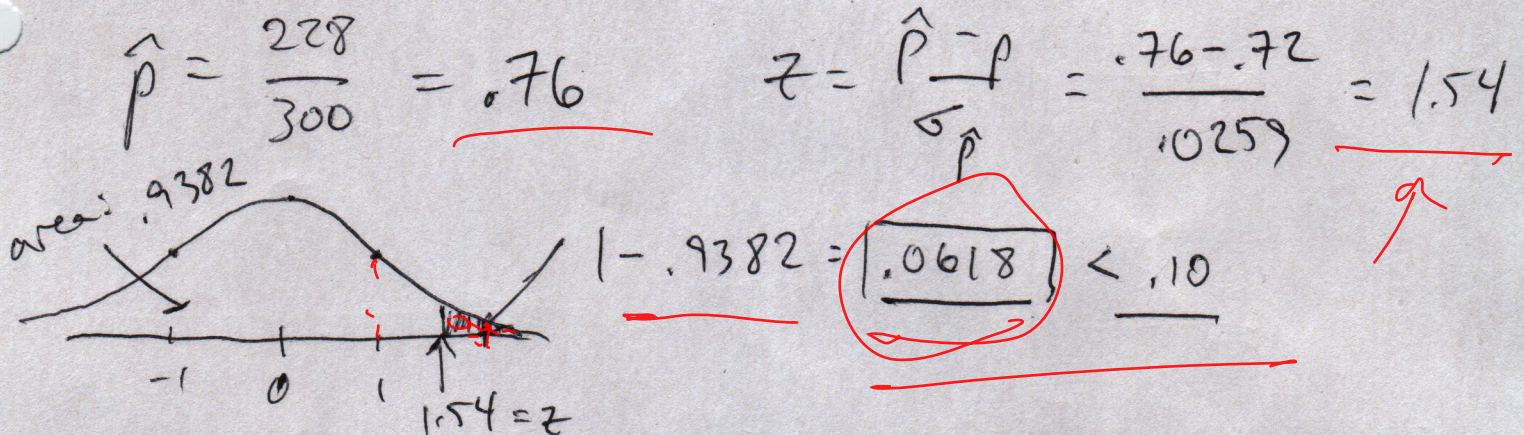 p̂ = 228/300 = .76
z = (p̂ - p)/σp̂ = (.76-.72)/.0259 = 1.54
area: .9382
1 - .9382 = .0618 < .10
-1 0 1
1.54 = z